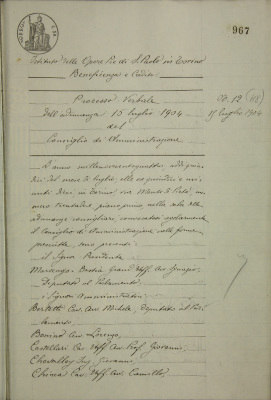 967
Istituto delle Opere Pie di S. Paolo in Torino
Beneficenza e Credito
Processo Verbale
dell'adunanza 15 luglio 1904
del
Consiglio di Amministrazione
N. 12
15 luglio 1904
L'anno millenovecentoquattro, addì quin
dici del mese di luglio, alle ore quindici e mi
nuti dieci, in Torino, via Monte di Pietà, nu
mero trentadue, piano primo nella sala delle
adunanze consigliari, convocatosi
il Consiglio di Amministrazione nelle forme
prescritte, sono presenti:
il Signor Presidente
Deputato al Parlamento
i Signori Amministratori
Bertetti Cav. Avv. Michele, Deputato al Par
lamento,
Bonino Avv. Lorenzo,
Castellari Cav. Uff. Avv. Prof. Giovanni,
Chevalley Ing. Giovanni,
Chiesa Cav. Uff. Avv. Camillo,